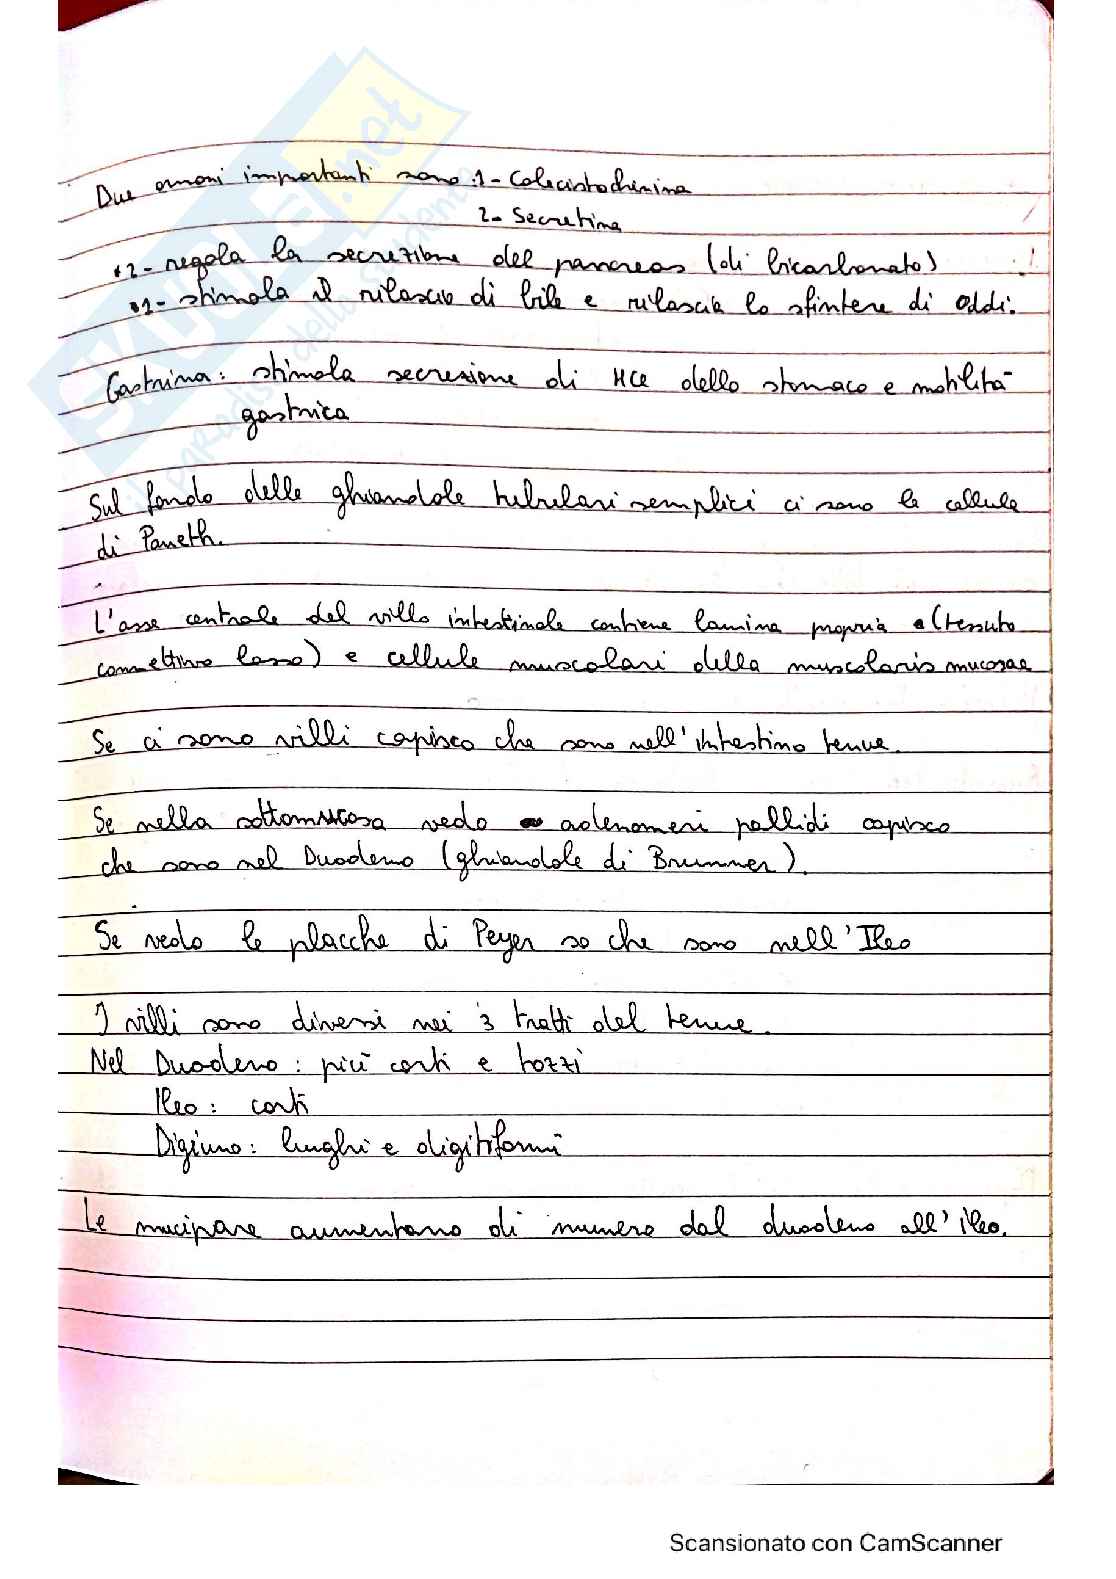 SKUOLA.net
il paradiso dello studente
Due ormoni importanti sono: 1- Colecistochinina
2- Secretina
•2- regola la secrezione del pancreas (di bicarbonato)
•1- stimola il rilascio di bile e rilascia lo sfintere di Oddi.
Gastrina: stimola secrezione di HCl dello stomaco e motilità
gastrica
Sul fondo delle ghiandole tubulari semplici ci sono le cellule
di Paneth.
L'asse centrale del villo intestinale contiene lamina propria (tessuto
connettivo lasso) e cellule muscolari della muscolaris mucosae
Se ci sono villi capisco che sono nell'intestino tenue.
Se nella sottomucosa vedo adenomeri pallidi capisco
che sono nel Duodeno (ghiandole di Brunner).
Se vedo le placche di Peyer so che sono nell'Ileo
I villi sono diversi nei 3 tratti del tenue.
Nel Duodeno: più corti e tozzi
Ileo: corti
Digiuno: lunghi e digitiformi
Le mucipare aumentano di numero dal duodeno all'ileo.
Scansionato con CamScanner